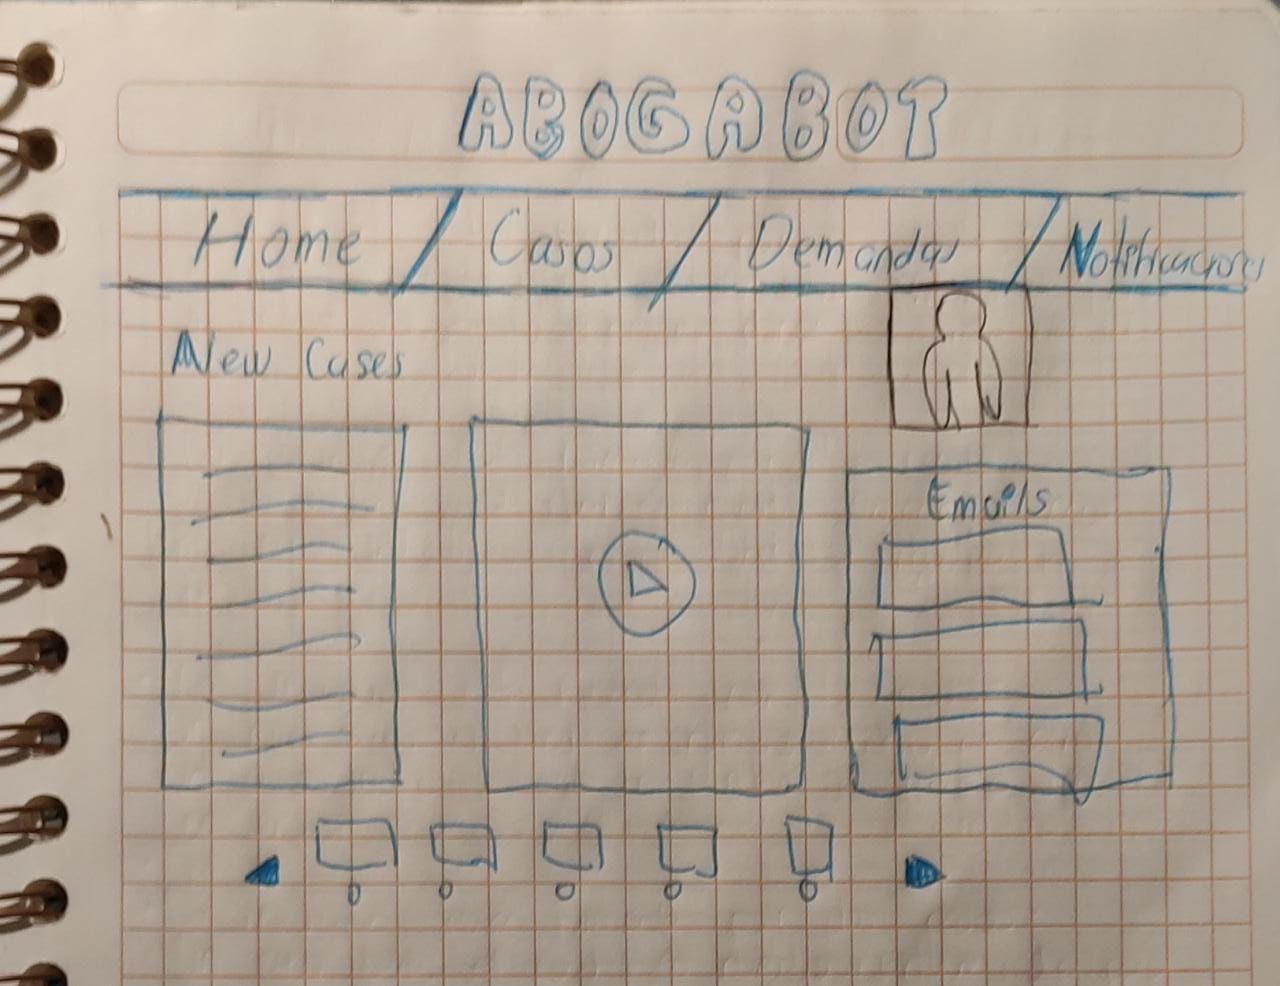 ABOGABOT
Home / Casos / Demandas / Notificaciones
New Cases
Emails